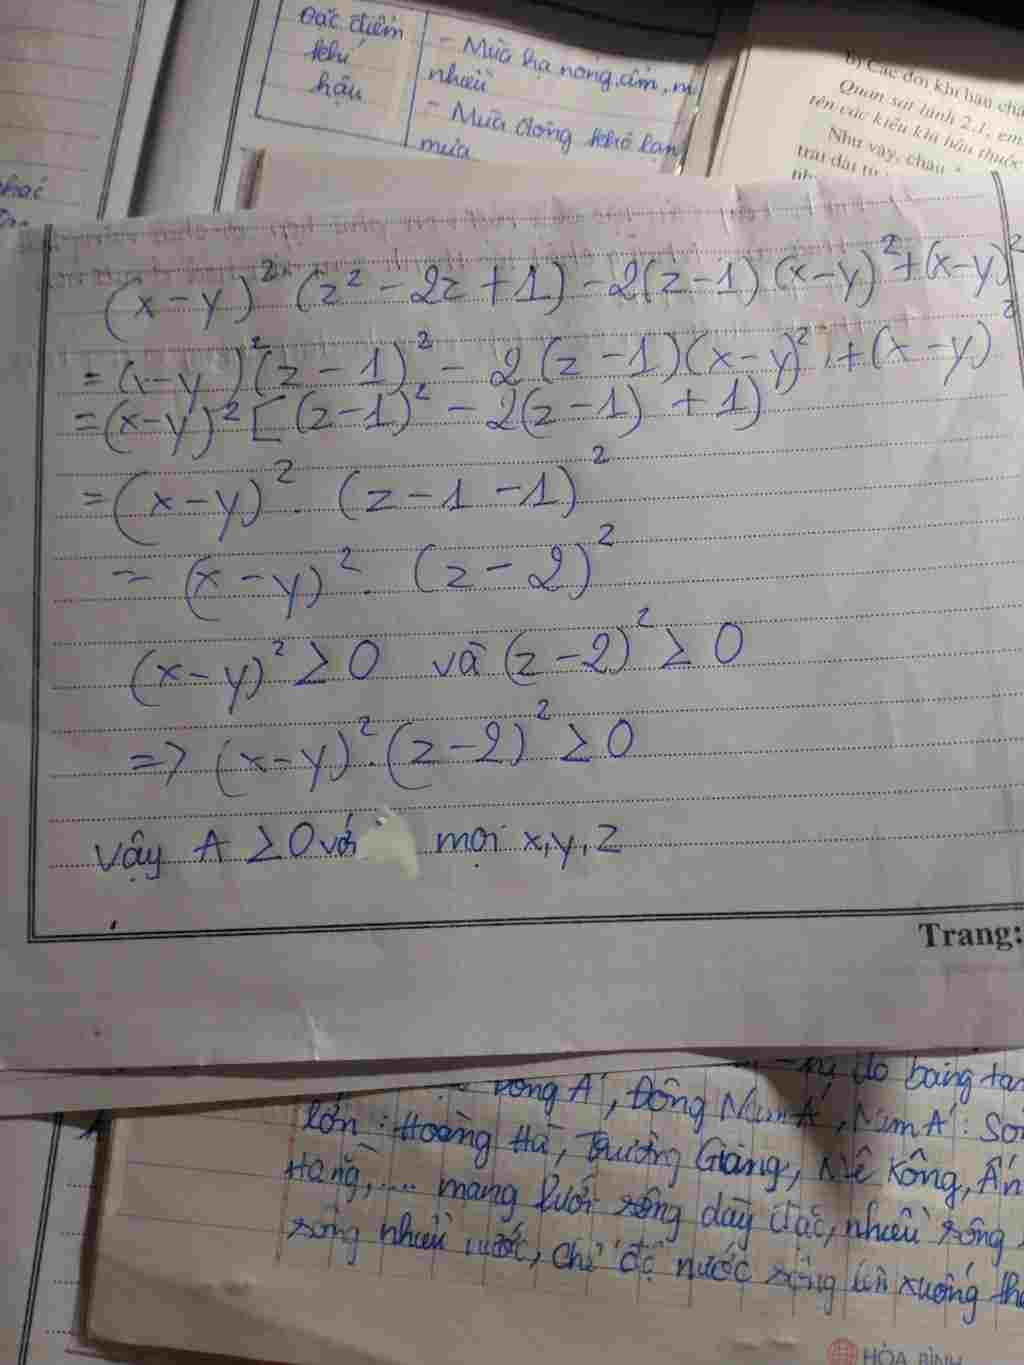 Đặc điểm
khí
hậu
- Mùa hạ nóng, ẩm, m
nhiều
- Mùa đông khô lạn
mưa
b) Các đới khí hậu châ
Quan sát hình 2.1, em
tên các kiểu khí hậu thuộc
Như vậy, châu
trái đất từ
(x-y)² (z² - 2z + 1) - 2(z-1) (x-y)² + (x-y)²
= (x-y)² (z-1)² - 2(z-1)(x-y)² + (x-y)²
= (x-y)² [(z-1)² - 2(z-1) + 1)
= (x-y)² . (z-1-1)²
= (x-y)² . (z-2)²
(x-y)² ≥ 0 và (z-2)² ≥ 0
=> (x-y)² . (z-2)² ≥ 0
Vậy A ≥ 0 với mọi x, y, z
Trang:
do băng tan
Đông Nam Á, Nam Á: Sôn
lớn: Hoàng Hà, Trường Giang, Mê Kông, Ấn
Hằng, ... mạng lưới sông dày đặc, nhiều sông
sông nhiều nước, chế độ nước sông lên xuống th
HÒA BÌNH